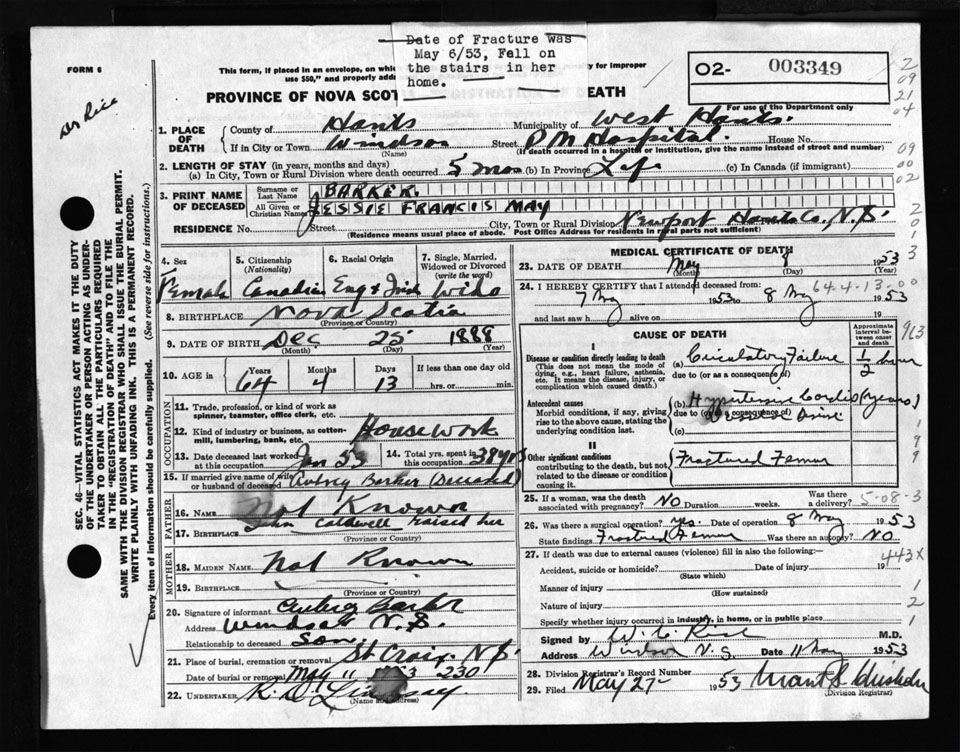 Date of Fracture was
May 6/53, Fall on
the stairs in her
home.
FORM 6
This form, if placed in an envelope, on whic
use $50," and properly addr
y for improper
02- 003349
For use of the Department only
PROVINCE OF NOVA SCOT
EATH
Dr Rice
2
09
21
04
09
00
02
2
0
1
3
1. PLACE OF DEATH
County of Hants Municipality of West Hants.
If in City or Town Windsor Street P M Hospital. House No.
(Name) (If death occurred in a hospital or institution, give the name instead of street and number)
2. LENGTH OF STAY (in years, months and days)
(a) In City, Town or Rural Division where death occurred 5 mos (b) In Province Life (c) In Canada (if immigrant)
3. PRINT NAME OF DECEASED
Surname or Last Name BARKER.
All Given or Christian Names JESSIE FRANCIS MAY
RESIDENCE No. Street City, Town or Rural Division Newport Hants Co, N.S.
(Residence means usual place of abode. Post Office Address for residents in rural parts not sufficient)
4. Sex Female
5. Citizenship (Nationality) Canadian
6. Racial Origin Eng & Irish
7. Single, Married, Widowed or Divorced (write the word) Wido
8. BIRTHPLACE Nova Scotia
(Province or Country)
9. DATE OF BIRTH Dec 25 1888
(Month) (Day) (Year)
10. AGE in Years 64 Months 4 Days 13 If less than one day old hrs. or min.
OCCUPATION
11. Trade, profession, or kind of work as spinner, teamster, office clerk, etc.
12. Kind of industry or business, as cotton-mill, lumbering, bank, etc. Housework
13. Date deceased last worked at this occupation Jan 53 14. Total yrs. spent in this occupation 38 yrs
15. If married give name of wife or husband of deceased Aubrey Barker (Deceased)
FATHER
16. NAME Not Known
John Caldwell raised her
17. BIRTHPLACE
(Province or Country)
MOTHER
18. MAIDEN NAME Not Known
19. BIRTHPLACE
(Province or Country)
20. Signature of informant Aubrey Barker
Address Windsor N.S.
Relationship to deceased Son.
21. Place of burial, cremation or removal St Croix N.S.
Date of burial or removal May 11 53 230
22. UNDERTAKER K. D. Lindsay.
(Name and Address)
MEDICAL CERTIFICATE OF DEATH
23. DATE OF DEATH May 8 1953
(Month) (Day) (Year)
24. I HEREBY CERTIFY that I attended deceased from:
64-4-13-00
7 May 1953 to 8 May 1953
and last saw h alive on 19
CAUSE OF DEATH
Approximate interval between onset and death
913
I
Disease or condition directly leading to death
(This does not mean the mode of dying, e.g., heart failure, asthenia, etc. It means the disease, injury, or complication which caused death.)
(a) Circulatory Failure 1/2 hour
due to (or as a consequence of)
Antecedent causes
Morbid conditions, if any, giving rise to the above cause, stating the underlying condition last.
(b) Hypertensive Cardio (years)
due to (or as a consequence of)
(c)
II
Other significant conditions
contributing to the death, but not related to the disease or condition causing it.
Fractured Femur
1
9
9
25. If a woman, was the death associated with pregnancy? NO Duration weeks. Was there a delivery? 5-08-3
26. Was there surgical operation? yes. Date of operation 8 May 1953
State findings Fractured Femur Was there an autopsy? NO
27. If death was due to external causes (violence) fill in also the following:—
443X
Accident, suicide or homicide? Date of injury 19
(State which)
Manner of injury 1
(How sustained)
Nature of injury 2
Specify whether injury occurred in industry, in home, or in public place 1
Signed by W. C. Rice M.D.
Address Windsor N.S. Date 11 May 1953
28. Division Registrar's Record Number
29. Filed May 27 1953
(Division Registrar)
SEC. 46—VITAL STATISTICS ACT MAKES IT THE DUTY
OF THE UNDERTAKER OR PERSON ACTING AS UNDER-
TAKER TO OBTAIN ALL THE PARTICULARS REQUIRED
IN THE "REGISTRATION OF DEATH" AND TO FILE THE
SAME WITH THE DIVISION REGISTRAR WHO SHALL ISSUE THE BURIAL PERMIT.
WRITE PLAINLY WITH UNFADING INK. THIS IS A PERMANENT RECORD.
Every item of information should be carefully supplied. (See reverse side for instructions.)